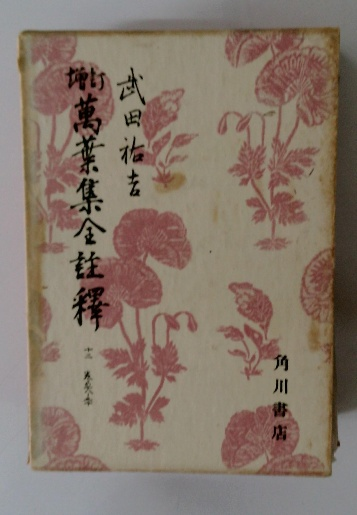 武田祐吉
増訂
萬葉集全註釋
十二
角川書店